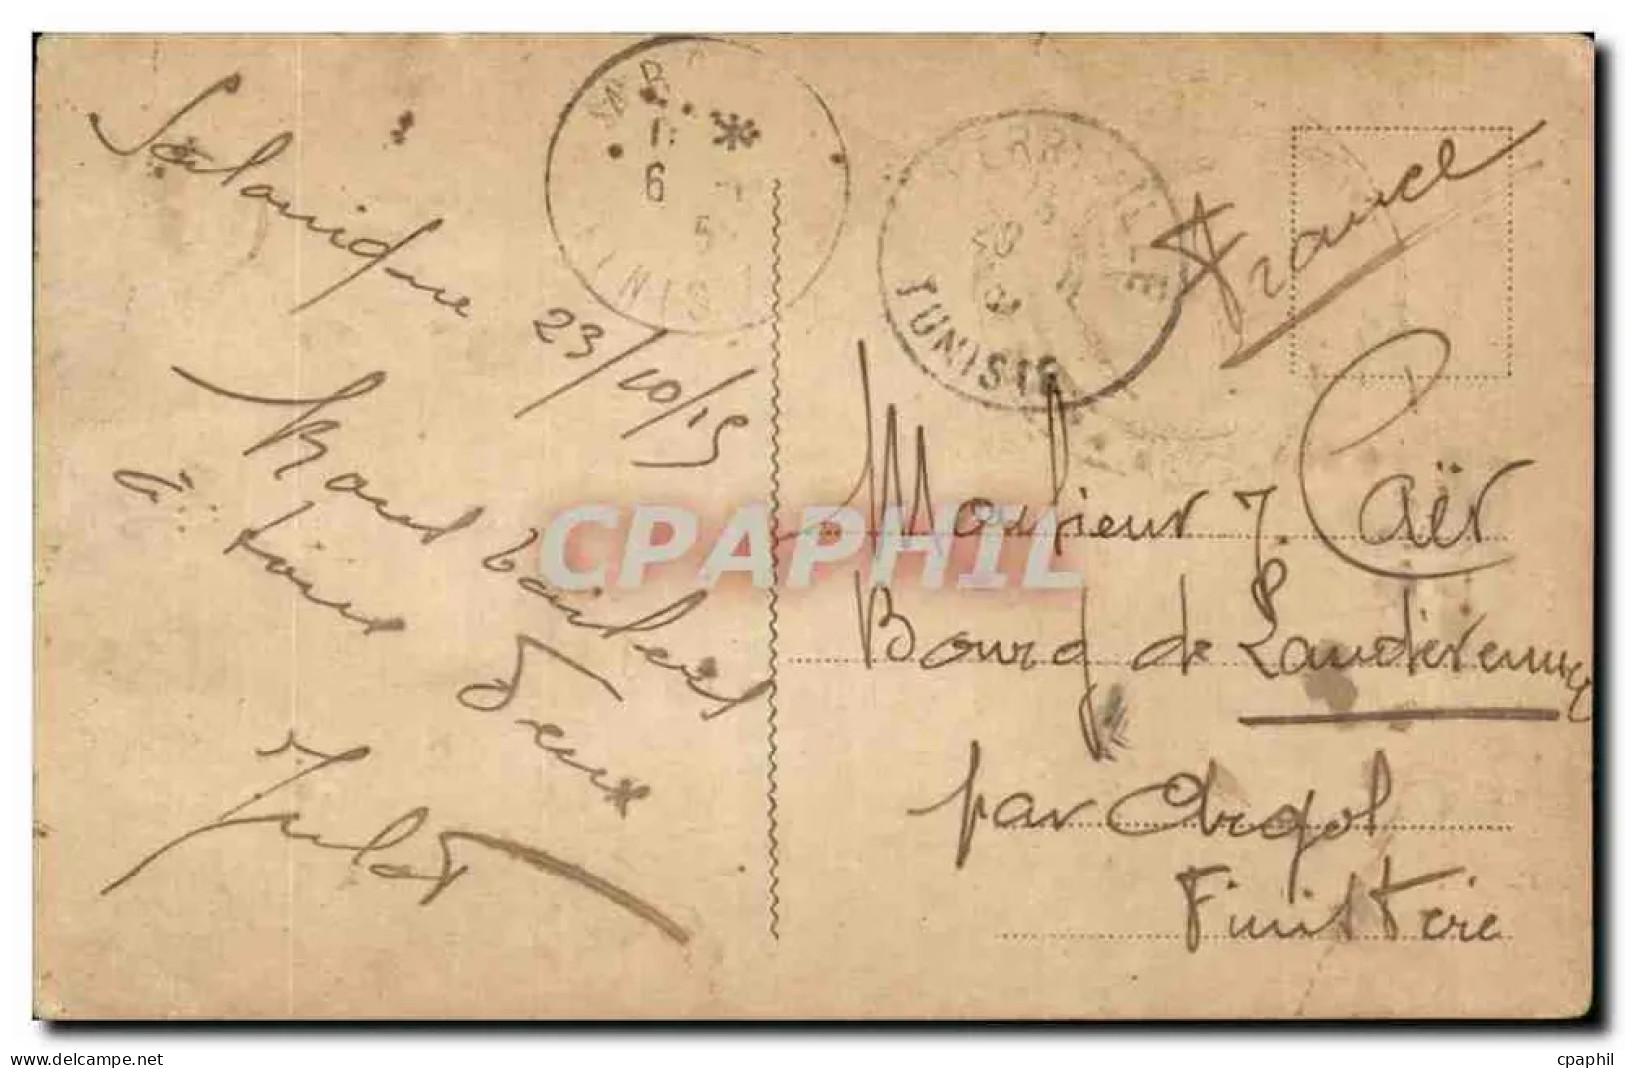 Salonique 23/10/15
Bons baisers
à tous deux
Julot
FERRYVILLE
TUNISIE
France
Monsieur J. Caër
Bourg de Landévennec
par Argol
Finistère
CPAPHIL
www.delcampe.net
cpaphil